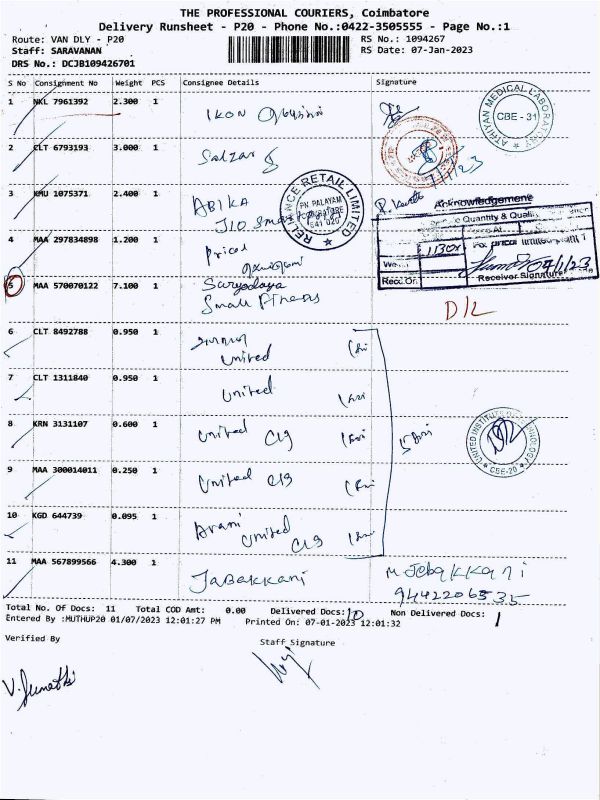 THE PROFESSIONAL COURIERS, Coimbatore
Delivery Runsheet - P20 - Phone No.:0422-3505555 - Page No.:1
Route: VAN DLY - P20 RS No.: 1094267
Staff: SARAVANAN RS Date: 07-Jan-2023
DRS No.: DCJB109426701
S No Consignment No Weight PCS Consignee Details Signature
1 NKL 7961392 2.300 1 IKON
ATHIYAN MEDICAL LABORATORY CBE - 31
2 CLT 6793193 3.000 1 Salzar
7/1/23
3 KMU 1075371 2.400 1 ABIKA
JIO Smart
RELIANCE RETAIL LIMITED
PN PALAYAM
COIMBATORE
641 020
Acknowledgement
Quantity &
4 MAA 297834898 1.200 1 Pricol
1130
For pricol limited plant 1
Recd.On
Receiver Signature
5 MAA 570070122 7.100 1 Suryodaya
Small Finens
D/L
6 CLT 8492788 0.950 1
United
7 CLT 1311840 0.950 1 United
8 KRN 3131107 0.600 1 United Clg
UNITED INSTITUTE OF TECHNOLOGY
CBE-20
9 MAA 300014011 0.250 1 United Clg
10 KGD 644739 0.095 1 Arani
United
Clg
11 MAA 567899566 4.300 1 Jabakkani M Jebakkani
9442206535
Total No. Of Docs: 11 Total COD Amt: 0.00 Delivered Docs: 10 Non Delivered Docs: 1
Entered By :MUTHUP20 01/07/2023 12:01:27 PM Printed On: 07-01-2023 12:01:32
Verified By Staff Signature
V. Sumathi